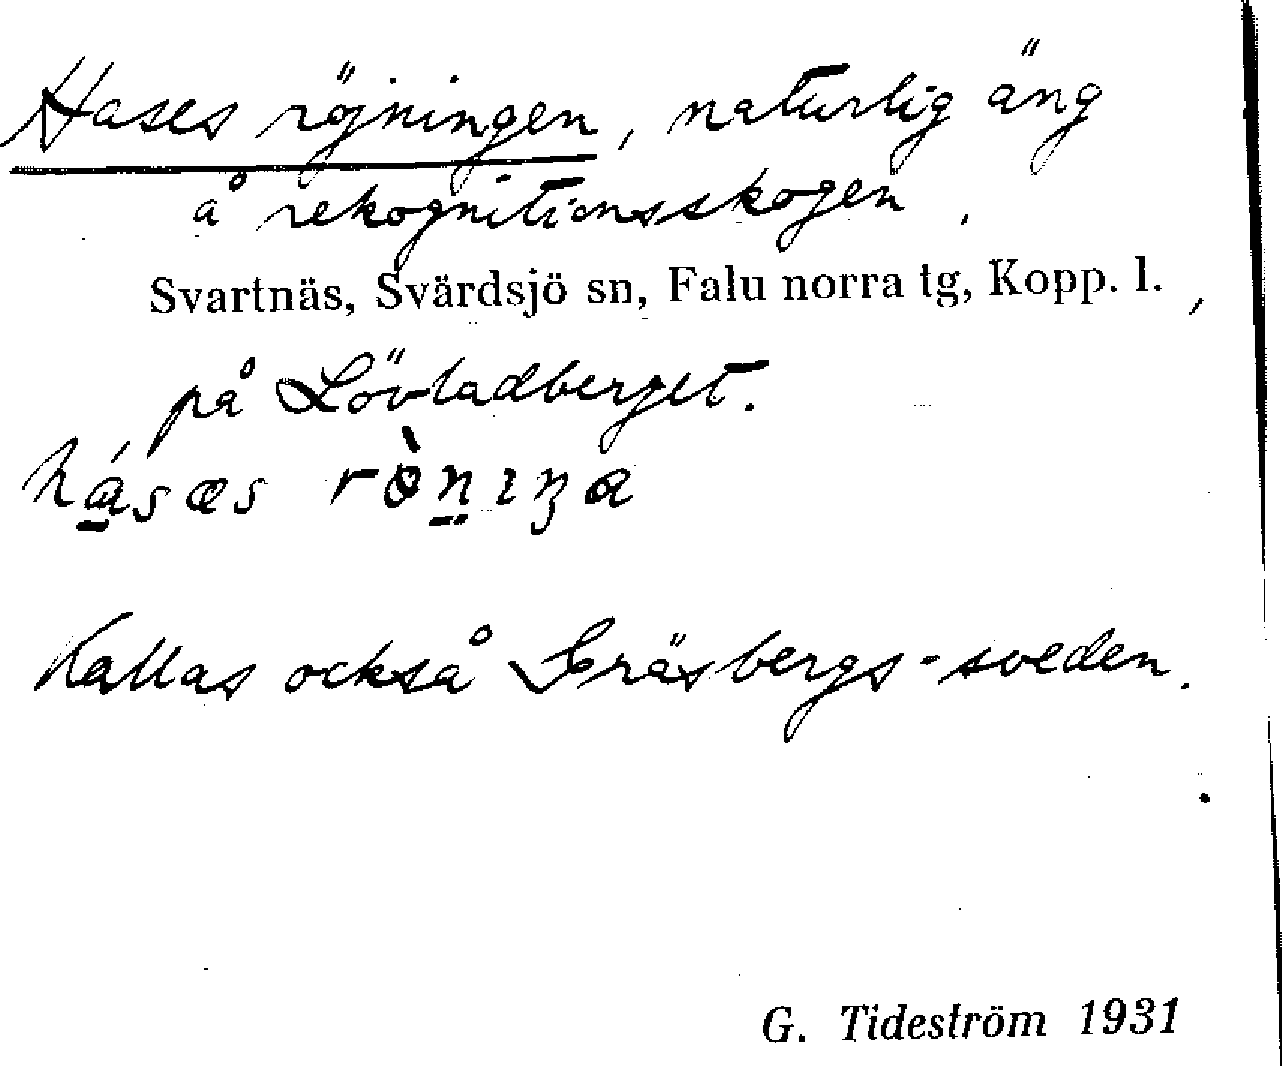 Hases röjningen, naturlig äng
å rekognitionsskogen,
Svartnäs, Svärdsjö sn, Falu norra tg, Kopp. l.,
på Lövladberget.
Kallas också Gräsbergs-sveden.
G. Tideström 1931